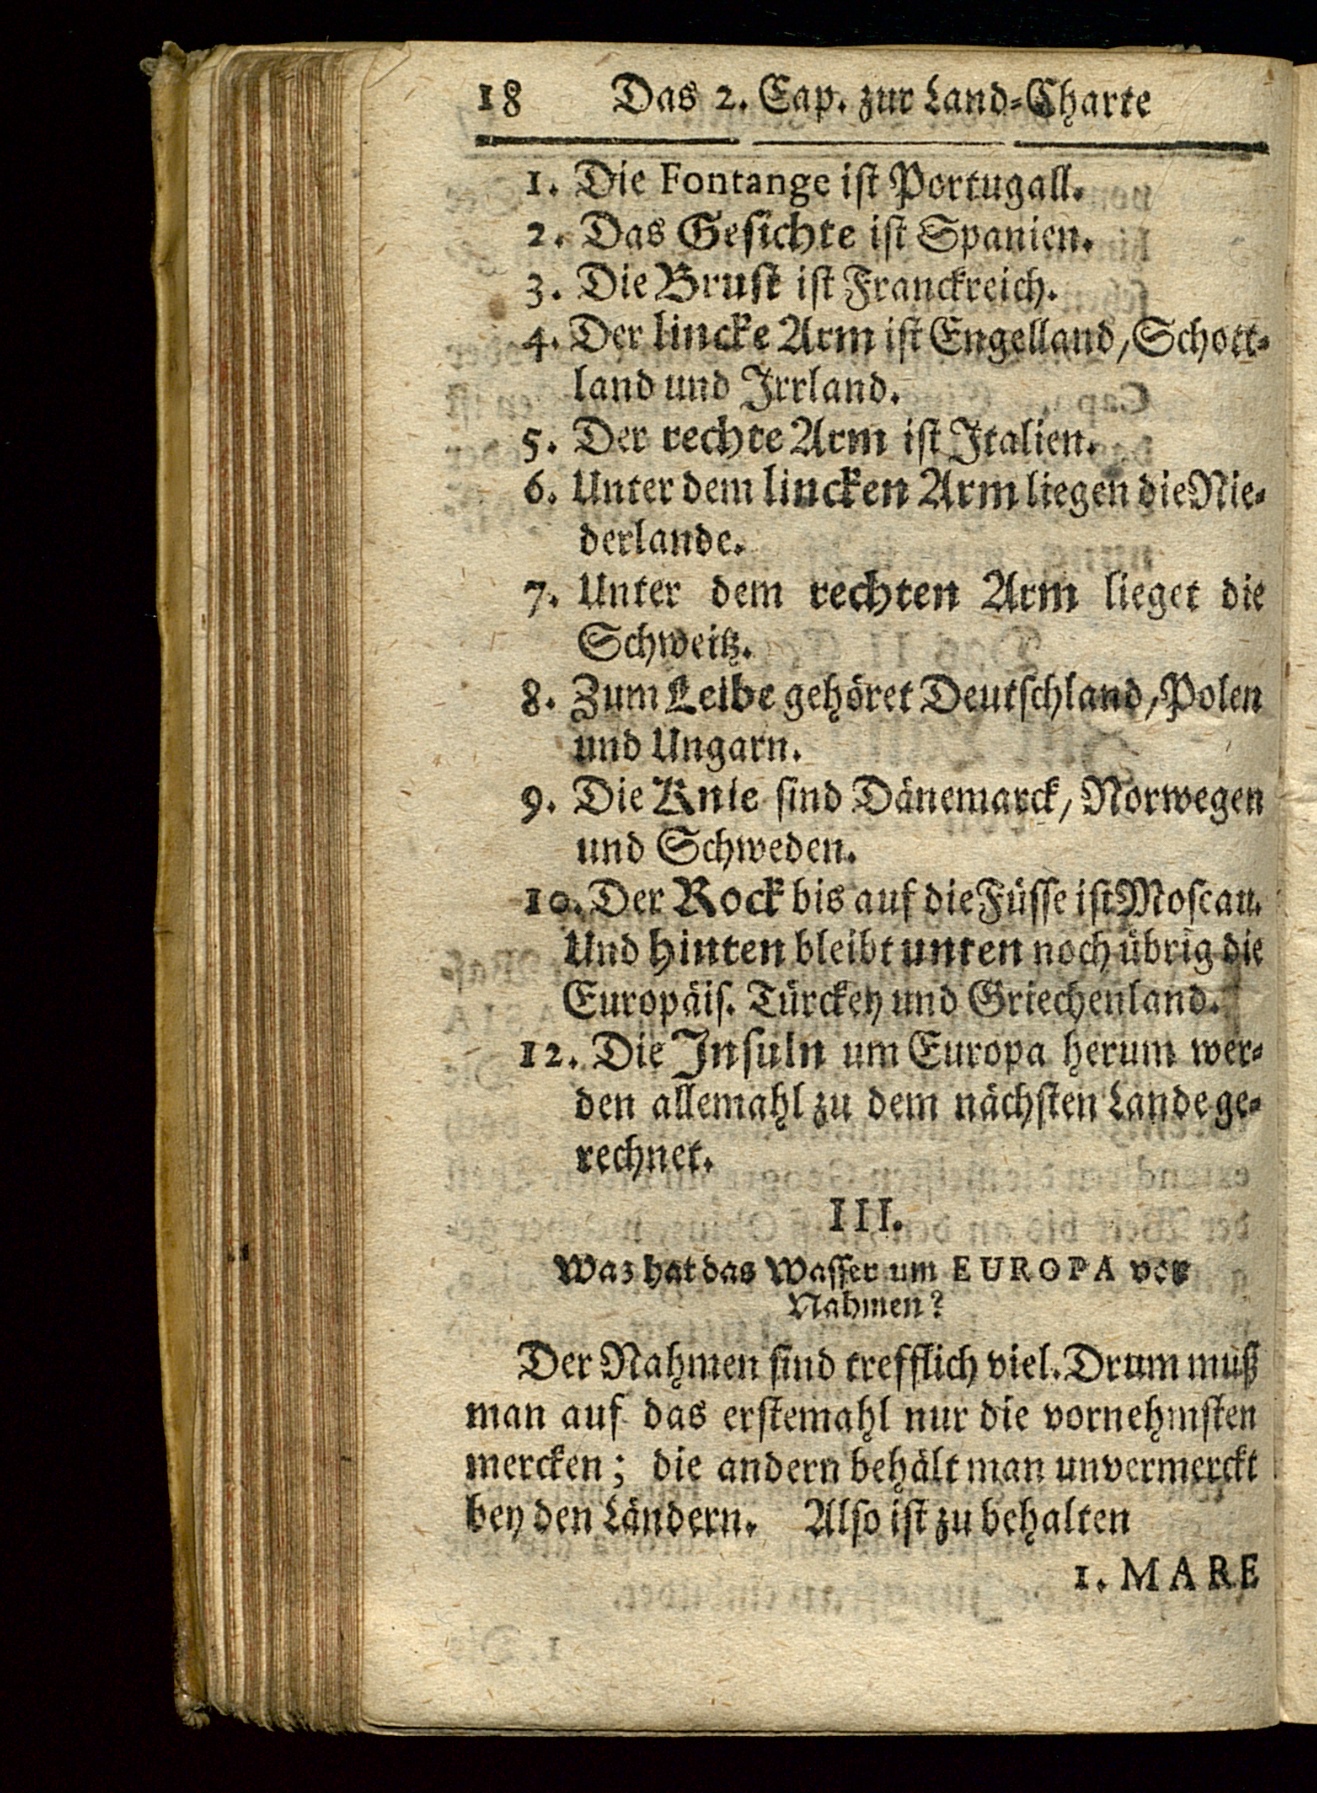 18 Das 2. Cap. zur Land-Charte
1. Die Fontange ist Portugall.
2. Das Gesichte ist Spanien.
3. Die Brust ist Franckreich.
4. Der lincke Arm ist Engelland, Schott-
land und Irrland.
5. Der rechte Arm ist Italien.
6. Unter dem lincken Arm liegen die Nie-
derlande.
7. Unter dem rechten Arm lieget die
Schweitz.
8. Zum Leibe gehöret Deutschland, Polen
und Ungarn.
9. Die Knie sind Dänemarck, Norwegen
und Schweden.
10. Der Rock bis auf die Füsse ist Moscau.
Und hinten bleibt unten noch übrig die
Europäis. Türckey und Griechenland.
12. Die Insuln um Europa herum wer-
den allemahl zu dem nächsten Lande ge-
rechnet.
III.
Waz hat das Wasser um EUROPA vor
Nahmen?
Der Nahmen sind trefflich viel. Drum muß
man auf das erstemahl nur die vornehmsten
mercken; die andern behält man unvermerckt
bey den Ländern. Also ist zu behalten
1. MARE